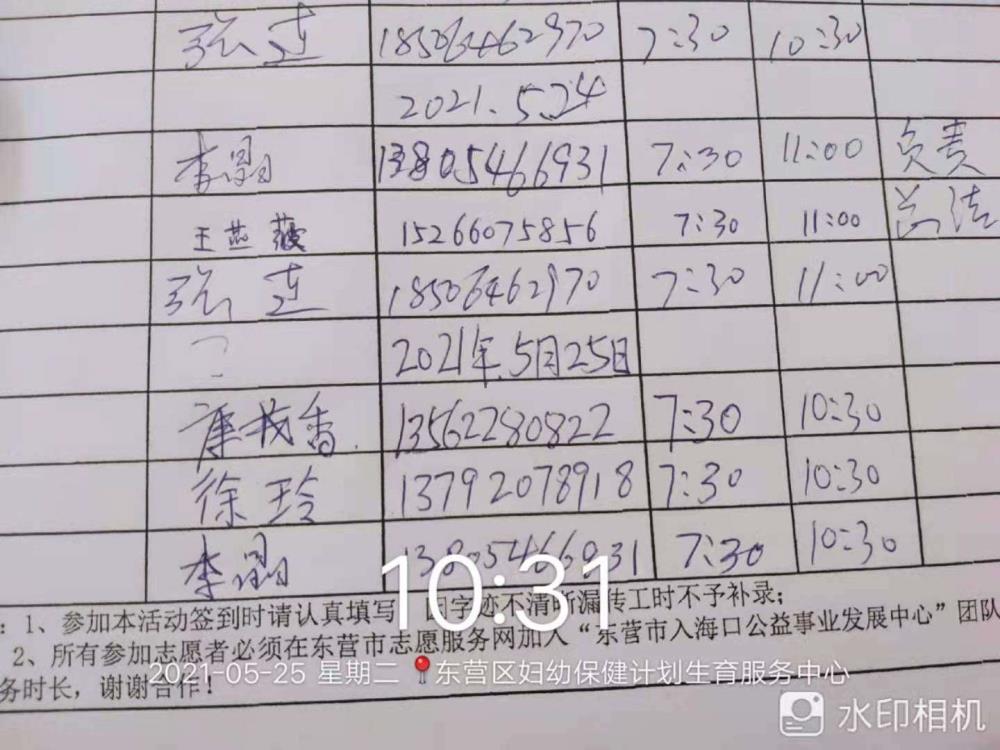 张莲 18506462970 7:30 10:30
2021.5.24
李晶 13805466931 7:30 11:00 负责
王燕薇 15266075856 7:30 11:00 总结
张莲 18506462970 7:30 11:00
2021年5月25日
康我香 13562280822 7:30 10:30
徐玲 13792078918 7:30 10:30
李晶 13805466931 7:30 10:30
10:31
：1、参加本活动签到时请认真填写 因字迹不清晰漏传工时不予补录；
2、所有参加志愿者必须在东营市志愿服务网加入“东营市入海口公益事业发展中心”团队
2021-05-25 星期二 东营区妇幼保健计划生育服务中心
务时长，谢谢合作！
水印相机